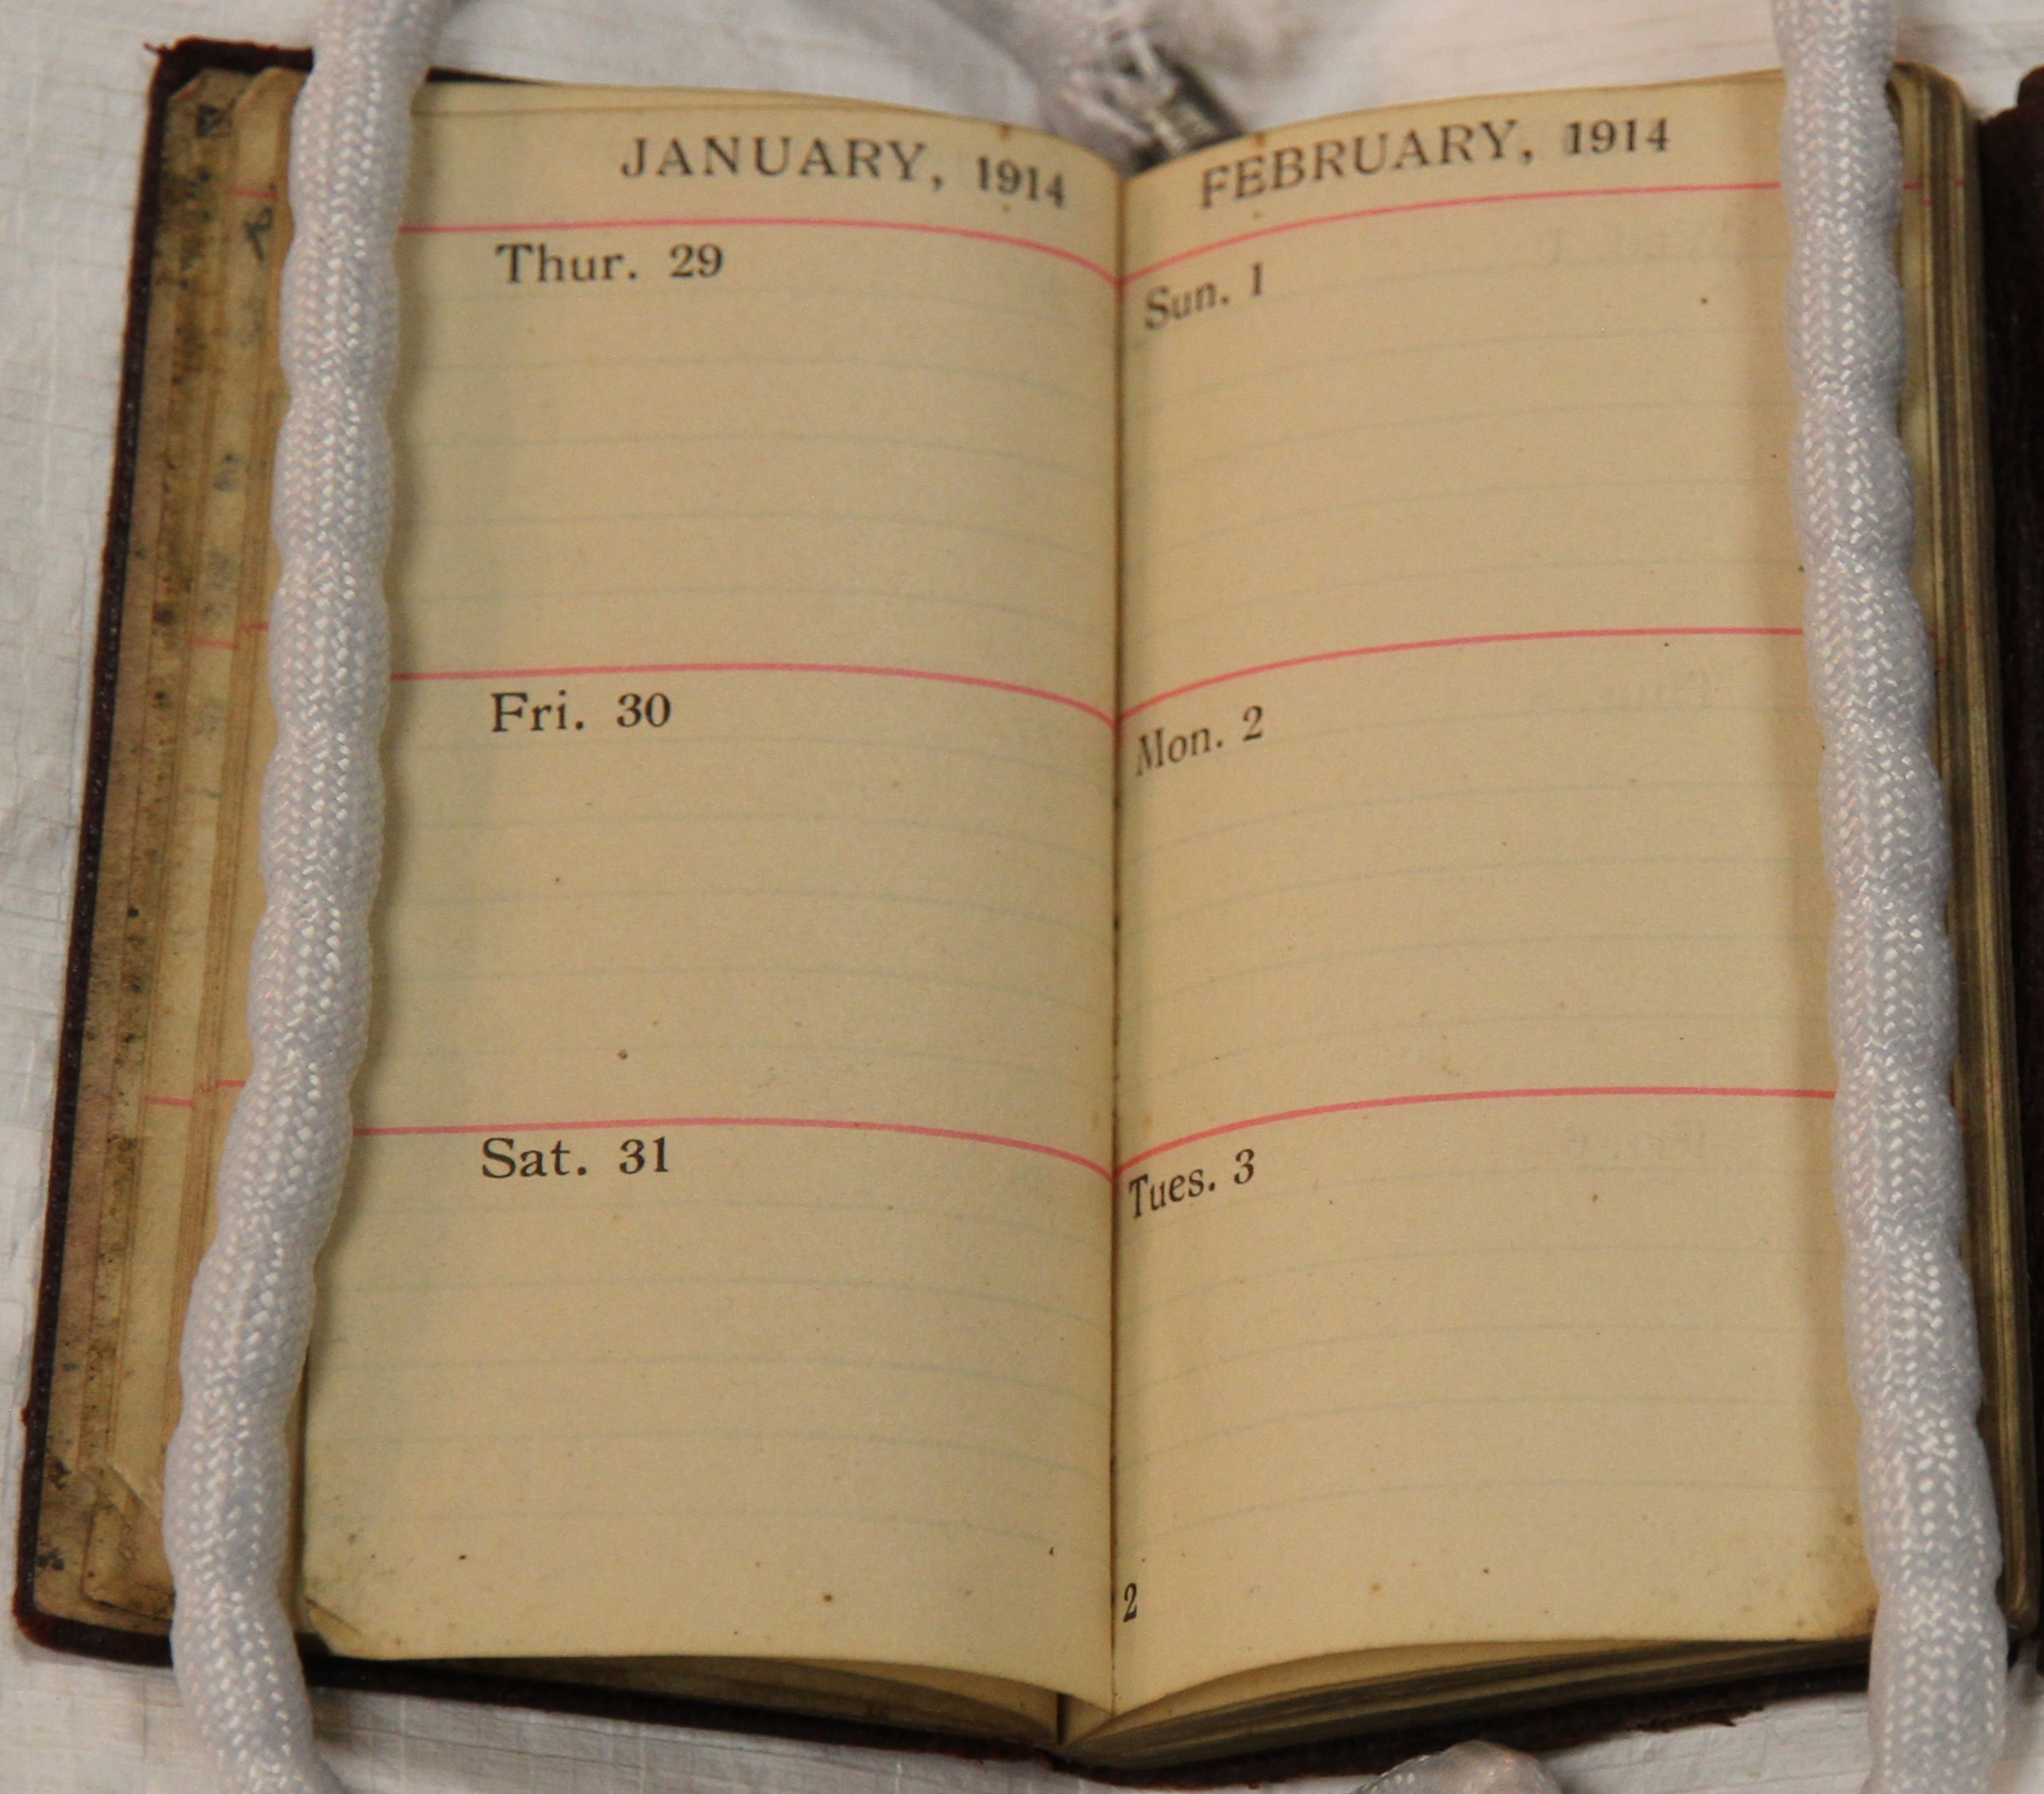 JANUARY, 1914
Thur. 29
Fri. 30
Sat. 31
FEBRUARY, 1914
Sun. 1
Mon. 2
Tues. 3
2